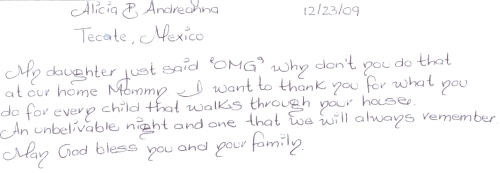 Alicia & Andreanna 12/23/09
Tecate, Mexico
My daughter just said "OMG" why don't you do that
at our home Mommy I want to thank you for what you
do for every child that walks through your house.
An unbelivable night and one that we will always remember
May God bless you and your family.